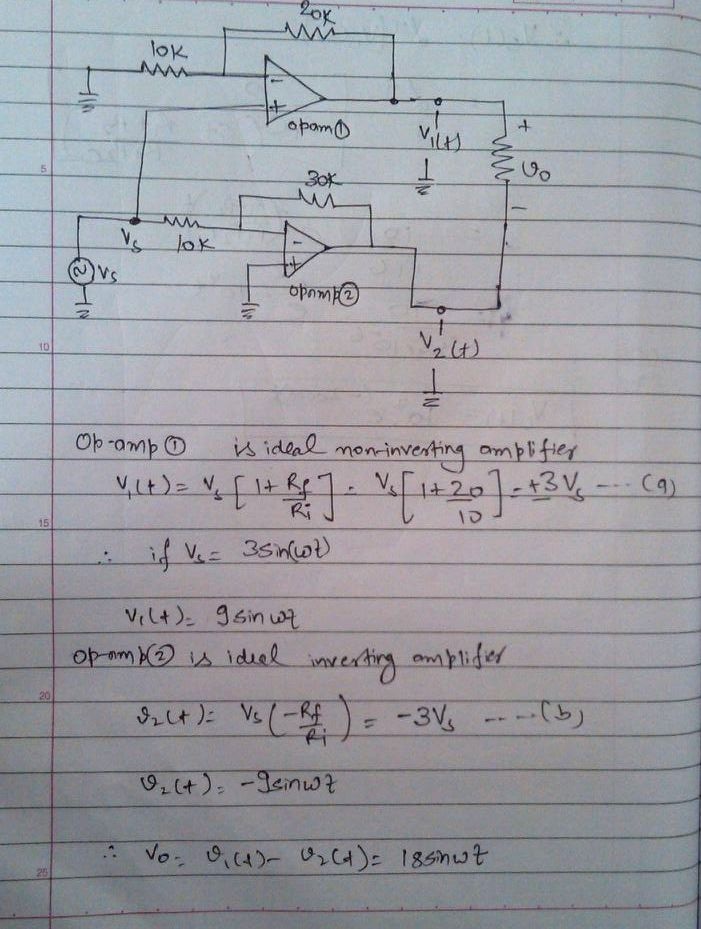 20K
10K
-
+
opam①
V₁(t)
+
υo
-
30K
Vs
10K
-
+
Vs
opamp②
V₂(t)
5
10
15
20
25
Op-amp① is ideal non-inverting amplifier
V₁(t) = Vs [1 + Rf/Ri] = Vs [1 + 20/10] = +3Vs --- (a)
∴ if Vs = 3sin(ωt)
V₁(t) = 9 sin ωt
Op-amp② is ideal inverting amplifier
υ₂(t) = Vs (-Rf/Ri) = -3Vs ----(b)
υ₂(t) = -9sinωt
∴ Vo = υ₁(t) - υ₂(t) = 18sinωt